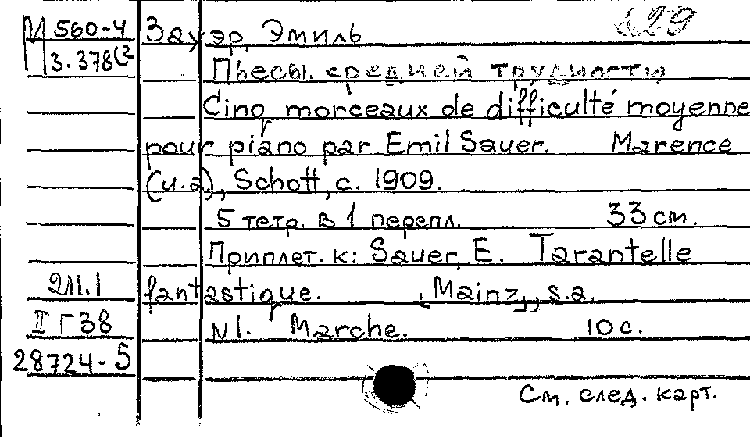 М 560-4 Зауэр, Эмиль 429
3.378(2
Пьесы средней трудности
Cinq morceaux de difficulté moyenne
pour piano par Emil Sauer. Marence
(и.а), Schott, c. 1909.
5 тетр. в 1 перепл. 33 см.
Приплет. к: Sauer, E. Tarantelle
2Л.1 fantastique. [Mainz], s.a.
II Г 38 N1. Marche. 10 с.
28724-5
См. след. карт.